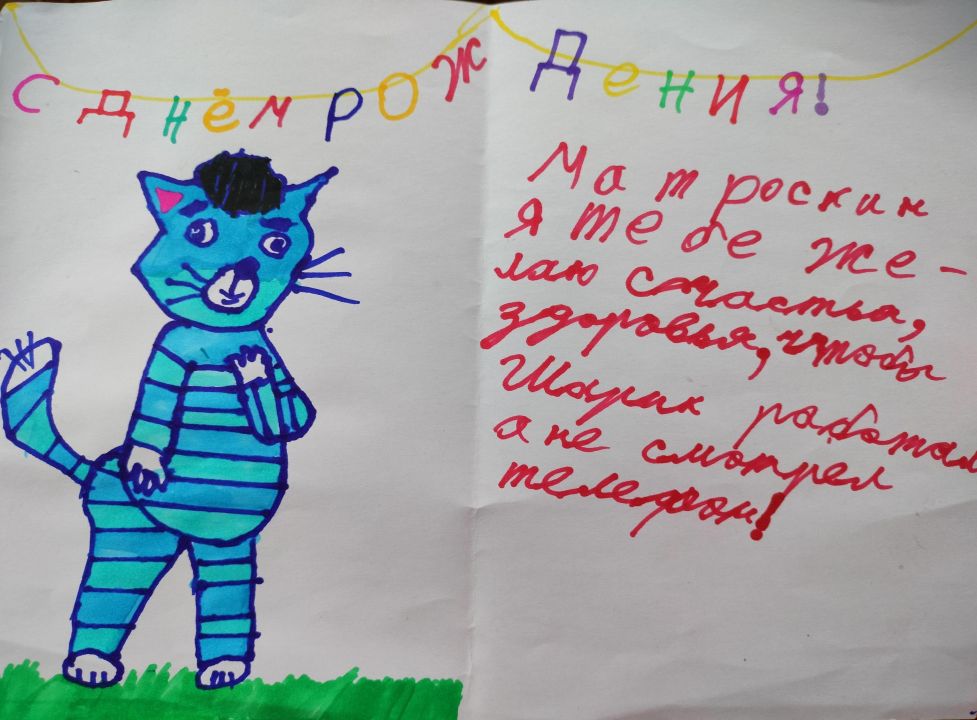 С Днём рож Дения!
Матроскин
я тебе же-
лаю счастья,
здоровья, чтобы
Шарик работал
а не смотрел
телефон!